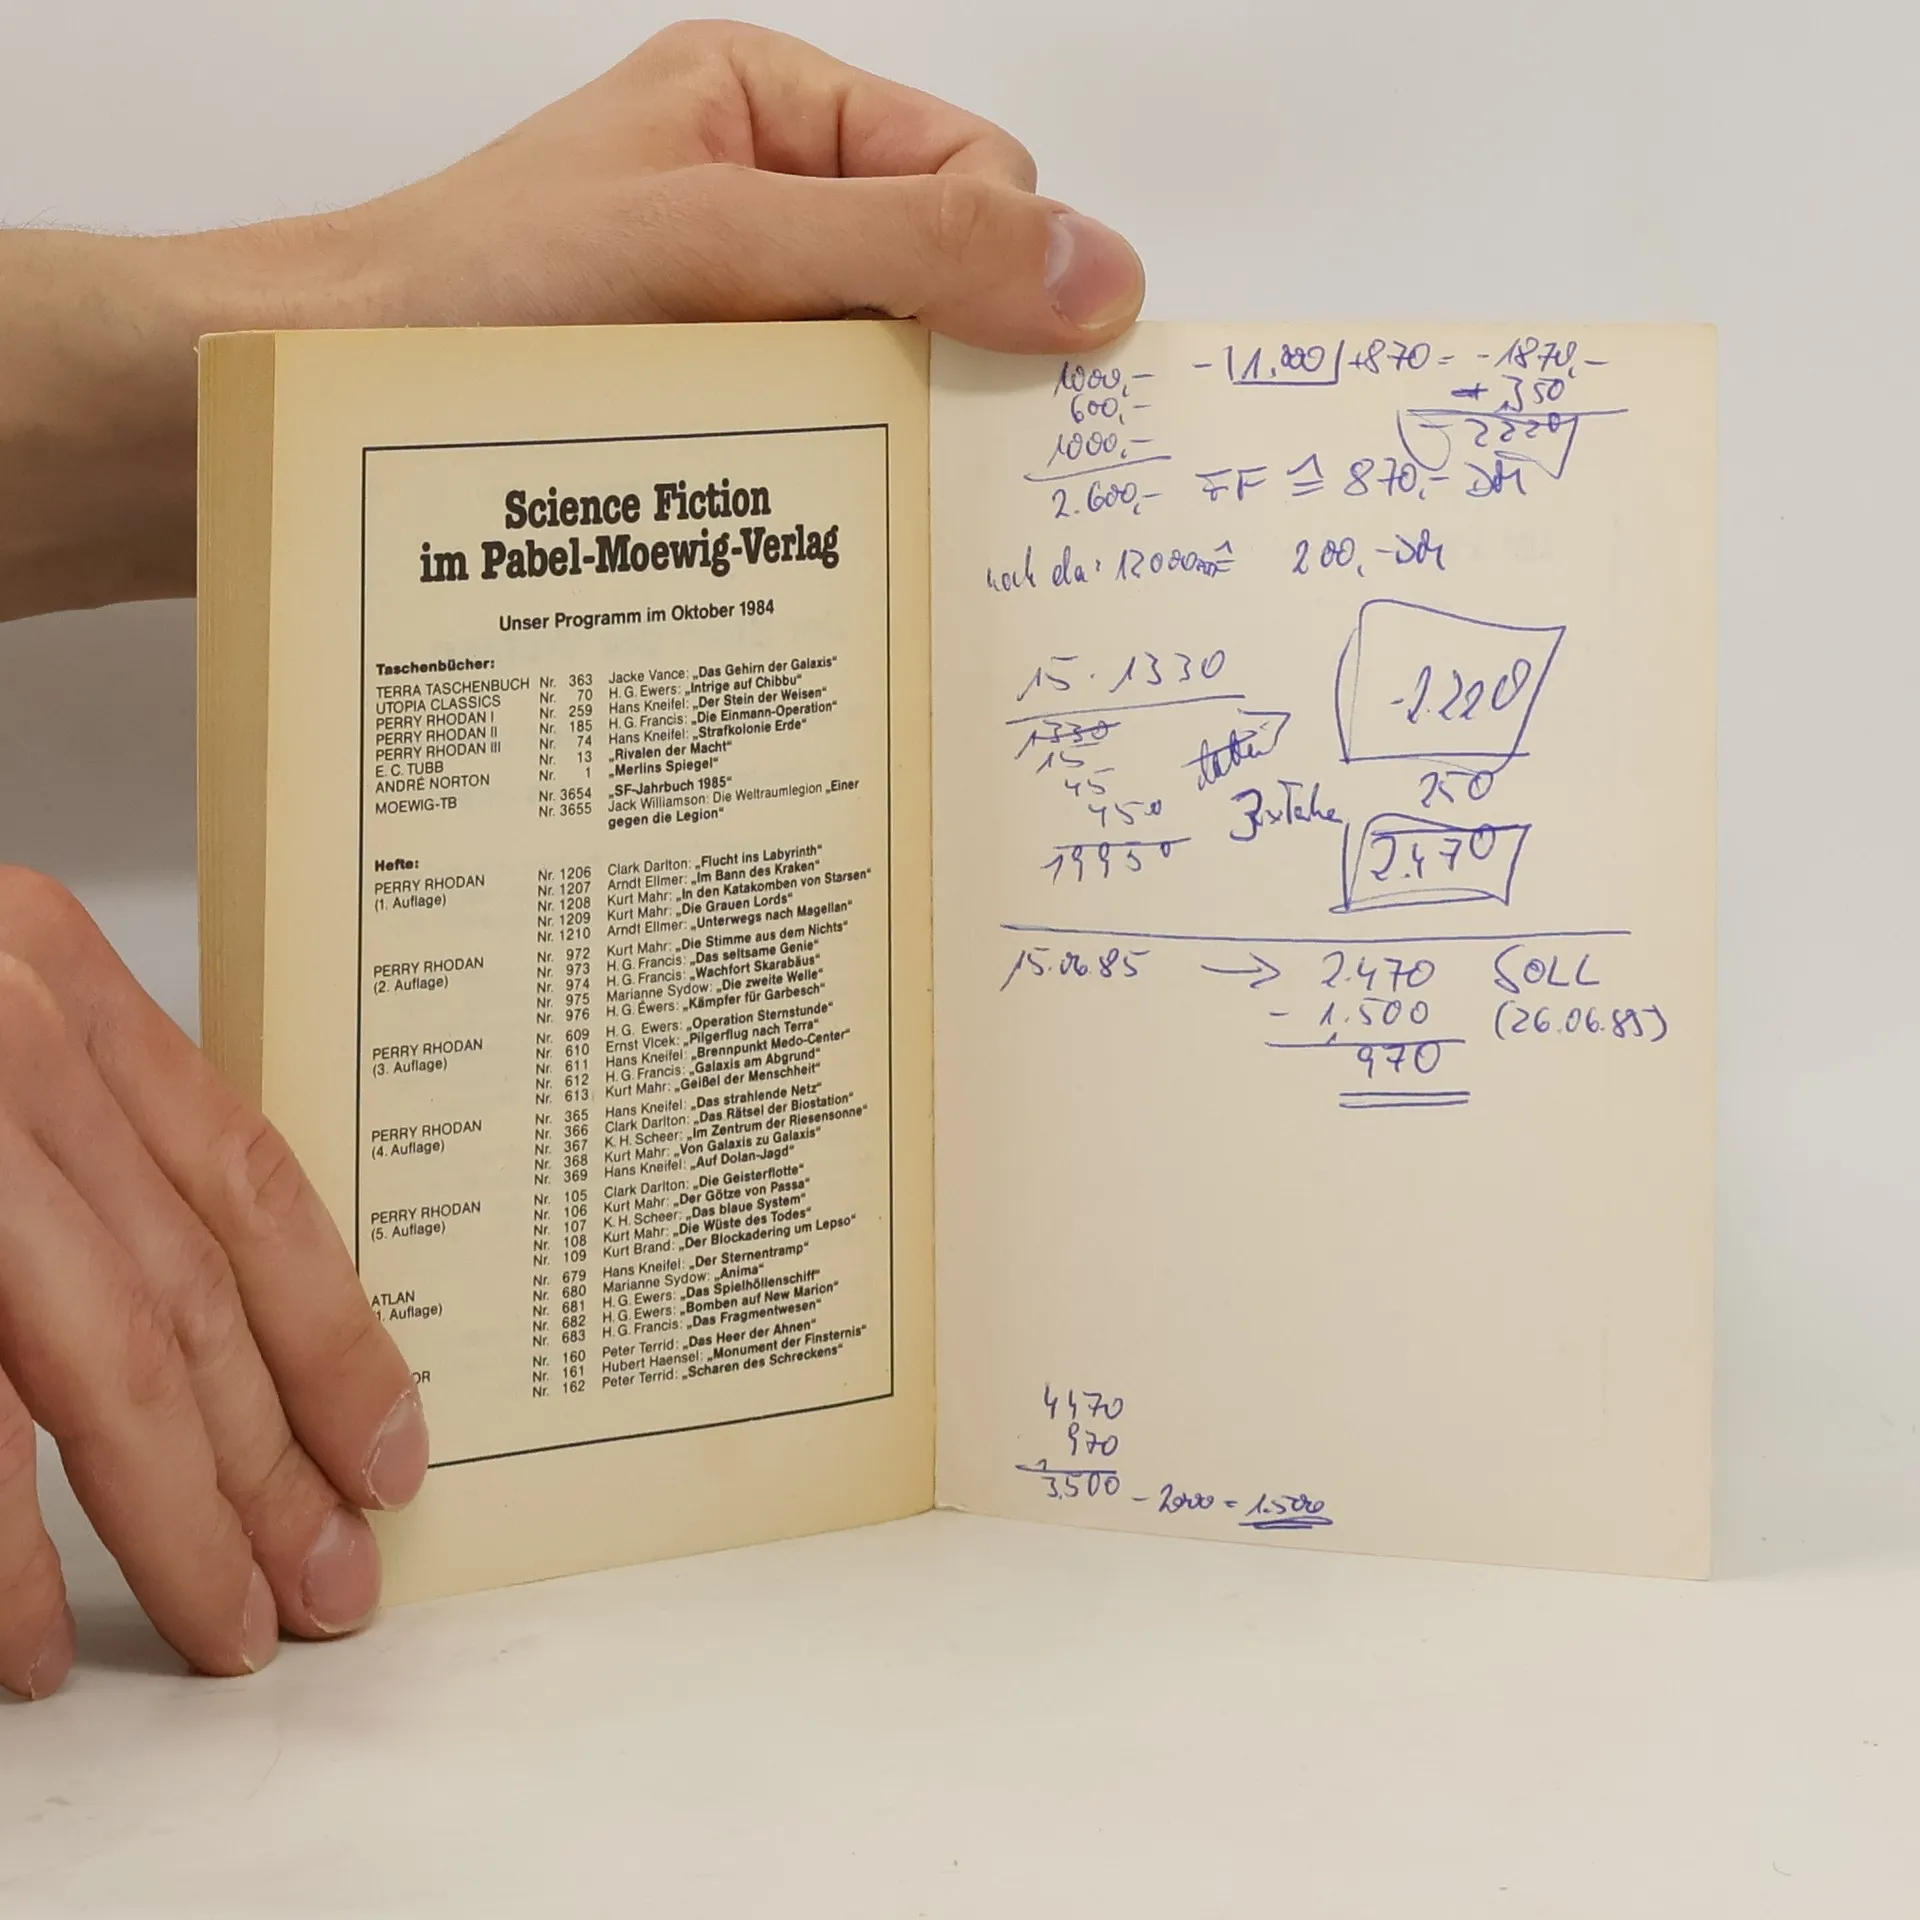 Science Fiction
im Pabel-Moewig-Verlag
Unser Programm im Oktober 1984
Taschenbücher:
TERRA TASCHENBUCH Nr. 363 Jacke Vance: „Das Gehirn der Galaxis“
UTOPIA CLASSICS Nr. 70 H. G. Ewers: „Intrige auf Chibbu“
PERRY RHODAN I Nr. 259 Hans Kneifel: „Der Stein der Weisen“
PERRY RHODAN II Nr. 185 H. G. Francis: „Die Einmann-Operation“
PERRY RHODAN III Nr. 74 Hans Kneifel: „Strafkolonie Erde“
E. C. TUBB Nr. 13 „Rivalen der Macht“
ANDRÉ NORTON Nr. 1 „Merlins Spiegel“
MOEWIG-TB Nr. 3654 „SF-Jahrbuch 1985“
Nr. 3655 Jack Williamson: Die Weltraumlegion „Einer
gegen die Legion“
Hefte:
PERRY RHODAN Nr. 1206 Clark Darlton: „Flucht ins Labyrinth“
(1. Auflage) Nr. 1207 Arndt Ellmer: „Im Bann des Kraken“
Nr. 1208 Kurt Mahr: „In den Katakomben von Starsen“
Nr. 1209 Kurt Mahr: „Die Grauen Lords“
Nr. 1210 Arndt Ellmer: „Unterwegs nach Magellan“
PERRY RHODAN Nr. 972 Kurt Mahr: „Die Stimme aus dem Nichts“
(2. Auflage) Nr. 973 H. G. Francis: „Das seltsame Genie“
Nr. 974 H. G. Francis: „Wachfort Skarabäus“
Nr. 975 Marianne Sydow: „Die zweite Welle“
Nr. 976 H. G. Ewers: „Kämpfer für Garbesch“
PERRY RHODAN Nr. 609 H. G. Ewers: „Operation Sternstunde“
(3. Auflage) Nr. 610 Ernst Vlcek: „Pilgerflug nach Terra“
Nr. 611 Hans Kneifel: „Brennpunkt Medo-Center“
Nr. 612 H. G. Francis: „Galaxis am Abgrund“
Nr. 613 Kurt Mahr: „Geißel der Menschheit“
PERRY RHODAN Nr. 365 Hans Kneifel: „Das strahlende Netz“
(4. Auflage) Nr. 366 Clark Darlton: „Das Rätsel der Biostation“
Nr. 367 K. H. Scheer: „Im Zentrum der Riesensonne“
Nr. 368 Kurt Mahr: „Von Galaxis zu Galaxis“
Nr. 369 Hans Kneifel: „Auf Dolan-Jagd“
PERRY RHODAN Nr. 105 Clark Darlton: „Die Geisterflotte“
(5. Auflage) Nr. 106 Kurt Mahr: „Der Götze von Passa“
Nr. 107 K. H. Scheer: „Das blaue System“
Nr. 108 Kurt Mahr: „Die Wüste des Todes“
Nr. 109 Kurt Brand: „Der Blockadering um Lepso“
ATLAN Nr. 679 Hans Kneifel: „Der Sternentramp“
1. Auflage) Nr. 680 Marianne Sydow: „Anima“
Nr. 681 H. G. Ewers: „Das Spielhöllenschiff“
Nr. 682 H. G. Ewers: „Bomben auf New Marion“
Nr. 683 H. G. Francis: „Das Fragmentwesen“
OR Nr. 160 Peter Terrid: „Das Heer der Ahnen“
Nr. 161 Hubert Haensel: „Monument der Finsternis“
Nr. 162 Peter Terrid: „Scharen des Schreckens“
1000,- - 1.000 +870 = -1870,-
600,- + 350
1000,- - 2220
2.600,- FF ≙ 870,- DM
noch da: 12000 ≙ 200,- DM
15 · 1330
1330
15 -2.220
45 250
450
19950 2.470
15.06.85 → 2.470 SOLL
- 1.500 (26.06.85)
970
4470
970
3.500 - 2000 = 1.500